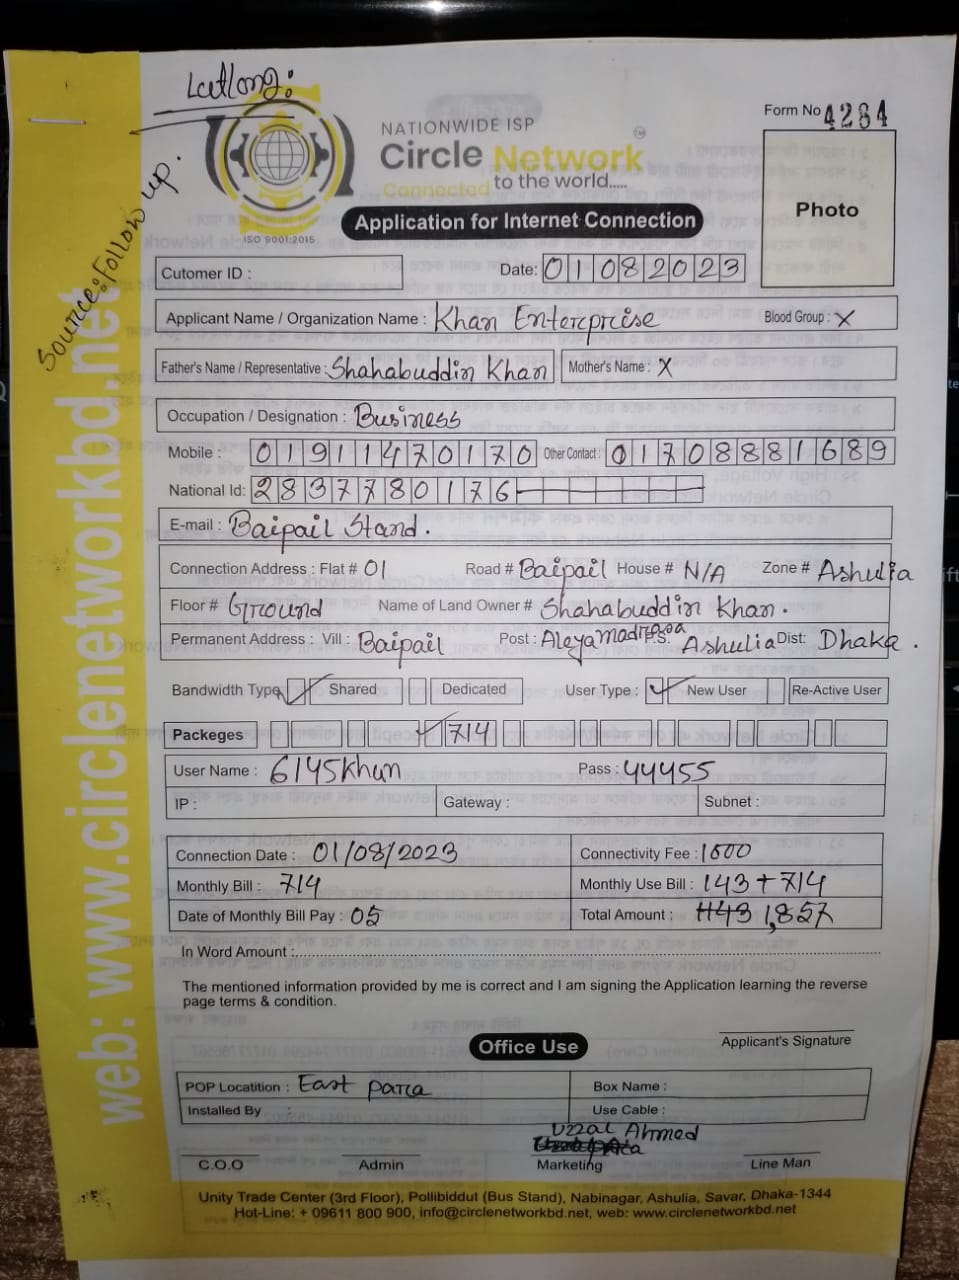 Latlong:
Source: Follow up.
web: www.circlenetworkbd.net
Form No 4284
NATIONWIDE ISP
Circle Network
Connected to the world.....
ISO 9001:2015
Application for Internet Connection
Photo
Cutomer ID :
Date: 01082023
Applicant Name / Organization Name : Khan Enterprise
Blood Group : X
Father's Name / Representative : Shahabuddin Khan
Mother's Name : X
Occupation / Designation : Business
Mobile : 01911470170
Other Contact : 01708881689
National Id: 2837780176
E-mail : Baipail Stand.
Connection Address : Flat # 01 Road # Baipail House # N/A Zone # Ashulia
Floor # Ground Name of Land Owner # Shahabuddin Khan.
Permanent Address : Vill : Baipail Post : Aleya madrasa P.S. Ashulia Dist: Dhaka.
Bandwidth Type Shared Dedicated User Type : New User Re-Active User
Packeges 714
User Name : 6145Khan Pass : 44455
IP : Gateway : Subnet :
Connection Date : 01/08/2023 Connectivity Fee : 1000
Monthly Bill : 714 Monthly Use Bill : 143+714
Date of Monthly Bill Pay : 05 Total Amount : 1,857
In Word Amount :
The mentioned information provided by me is correct and I am signing the Application learning the reverse
page terms & condition.
Applicant's Signature
Office Use
POP Locatition : East para Box Name :
Installed By : Use Cable :
Uzzal Ahmed
C.O.O Admin Marketing Line Man
Unity Trade Center (3rd Floor), Pollibiddut (Bus Stand), Nabinagar, Ashulia, Savar, Dhaka-1344
Hot-Line: + 09611 800 900, info@circlenetworkbd.net, web: www.circlenetworkbd.net